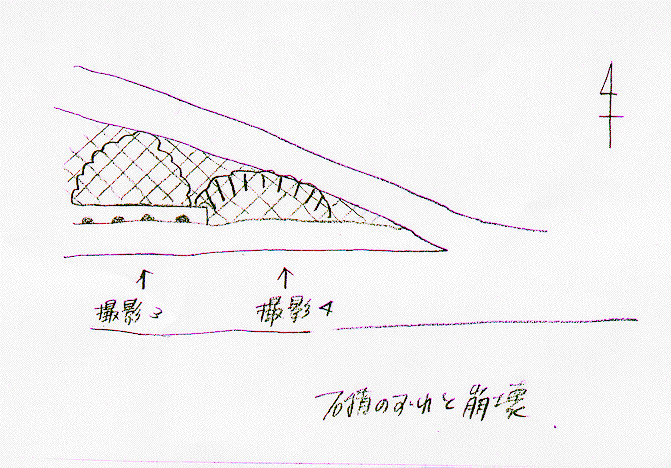 撮影3
撮影4
石積のずれと崩壊